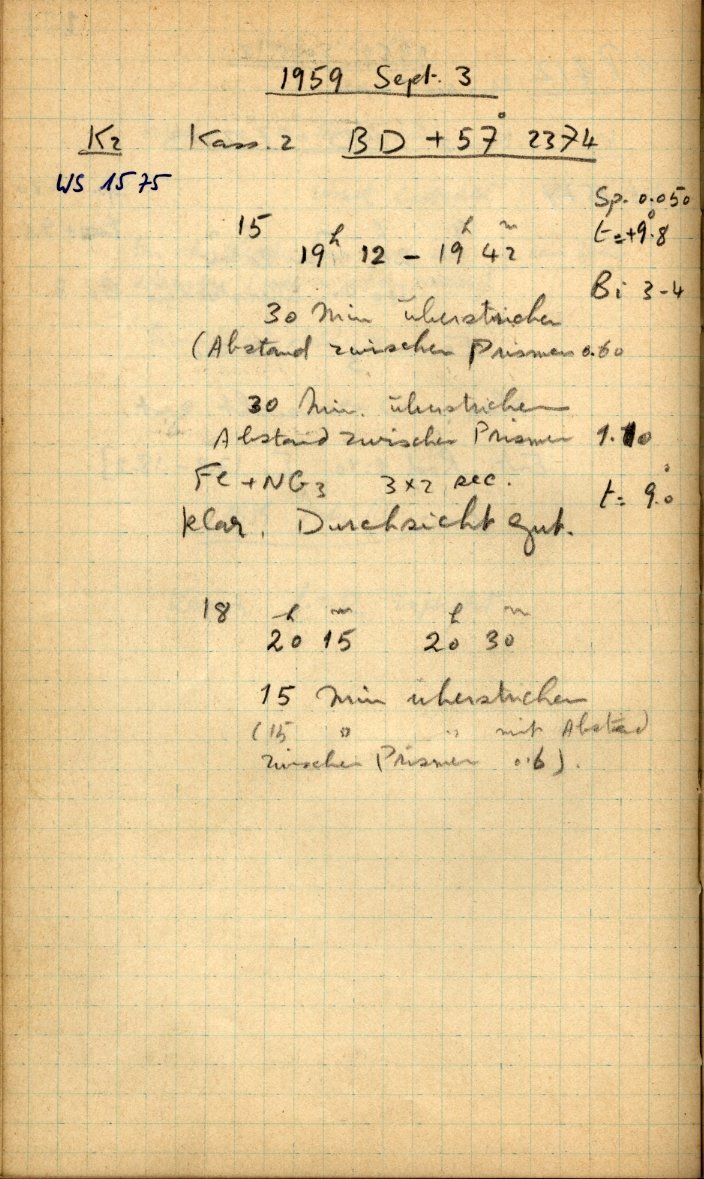 1959 Sept. 3
K2 Kass. 2 BD + 57° 2374
WS 1575
Sp. 0.050
15 19h 12 – 19h 42m t=+9°.8
Bi 3-4
30 Min überstrichen
(Abstand zwischen Prismen 0.60
30 Min. überstrichen
Abstand zwischen Prismen 1.10
Fe + NG3 3×2 sec. t= 9°.0
klar. Durchsicht gut.
18 20h 15m 20h 30m
15 Min überstrichen
(15 " " mit Abstand
zwischen Prismen 0.6).